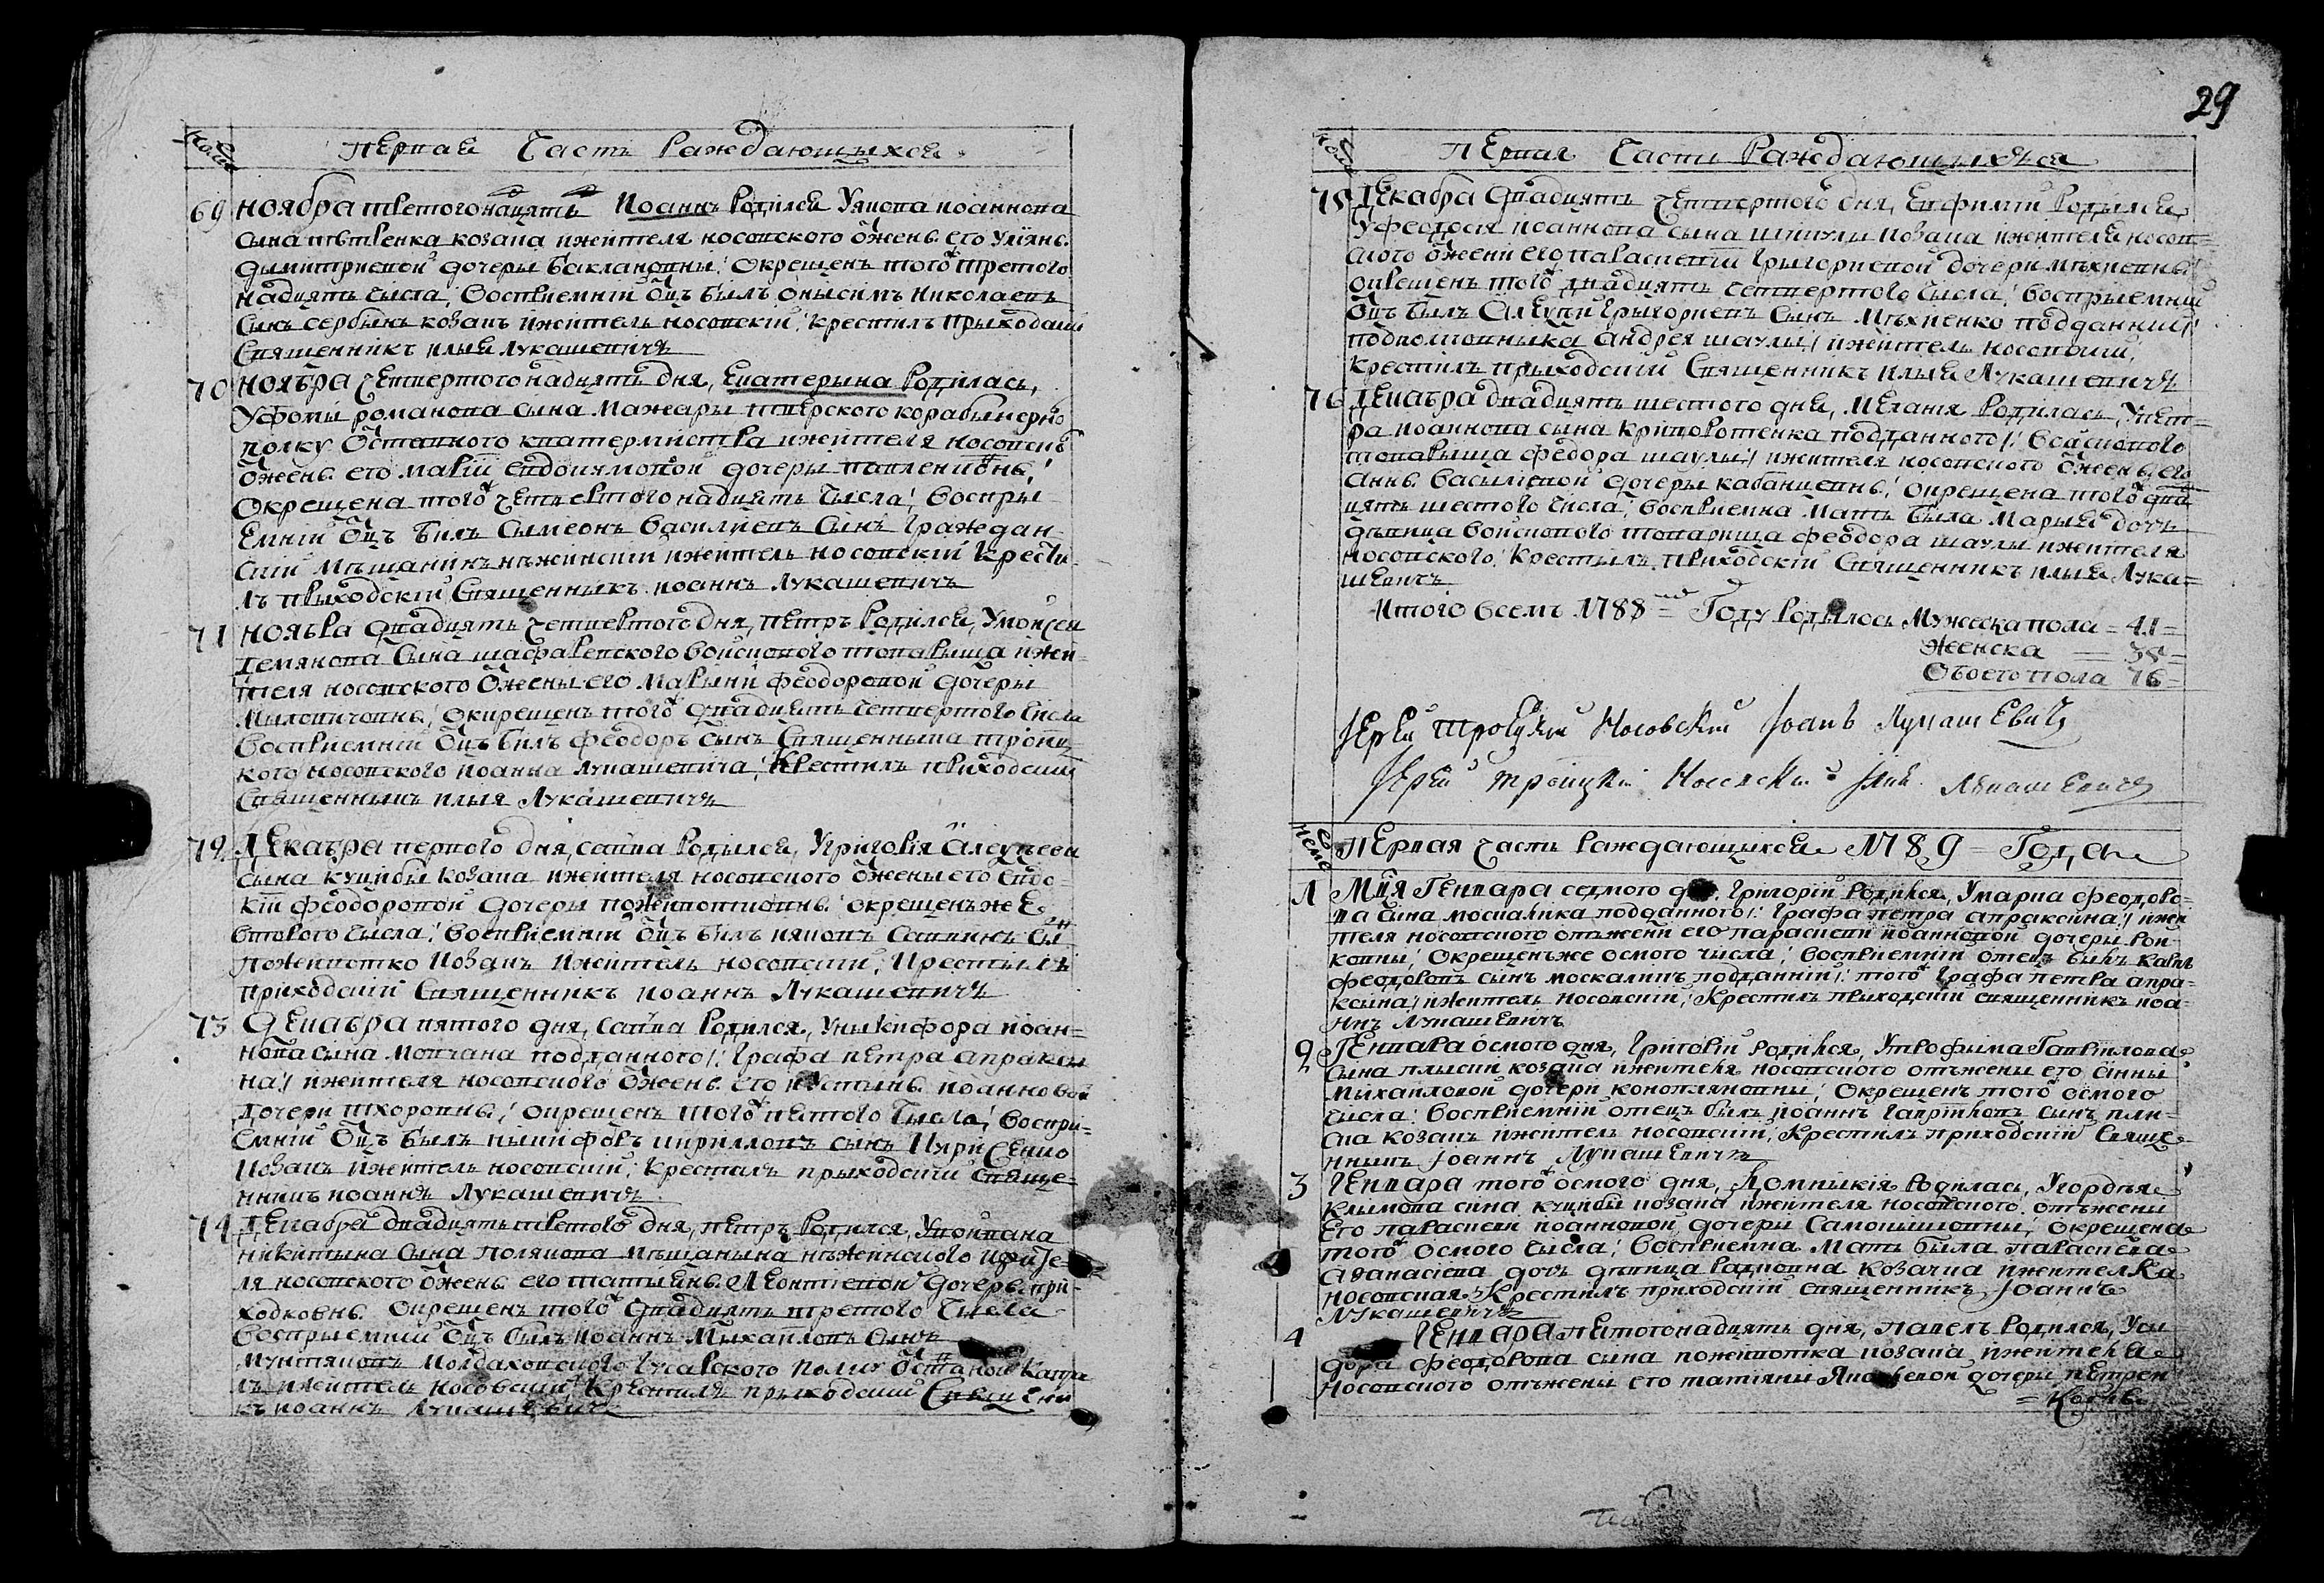 29
Первая Часть Раждающыхся
69 Ноября третогонадцять Иоаннъ Родился Уякова иоаннова
сына козака ижителя носовского ѡжены его Улїяны
дымитриевой дочеры Баклановны: Окрещенъ того третого
надцять числа, восприемнїй ѡцъ былъ онысимъ Николаевъ
Сынъ сербынъ козакъ ижитель носовскїй, крестилъ прыходскїй
Священникъ илыя Лукашевичъ
70 Ноябра четвертогонадцять дня, Екатерына Родилась,
Уфомы романова сына Мажары тверского корабынерно
полку ѡставного кватермистра ижителя носовск
ѡжены его марїи евдокимовой дочеры павленковны
Окрещена того четвертогонадцять числа, воспры-
емнїй ѡцъ былъ Сымеонъ василиевъ Сынъ Граждан
скїй мѣщанинъ нѣжинскїй ижитель носовскїй Крести-
лъ прыходскїй Священныкъ иоаннъ Лукашевичъ
71 Ноября двадцять четвертого дня, петръ Родился, Умоисея
демянова Сына войскового товарыща ижи-
теля носовского ѡжены его Марыни феодоровой дочеры
окрещенъ того двадцять четвертого числа
восприемнїй ѡцъ былъ феодоръ сынъ Священныка троиц
кого носовского иоанна лукашевича, Крестилъ приходскїй
Священныкъ илыя Лукашевичъ
72 Декабра первого дня, савва Родылся, Угригорїя Алексеева
сына куцыбы козака ижителя носовского ѡжены его Евдо-
кїи феодоровой дочеры окрещенъ же
второго числа, восприемнїй ѡцъ былъ яковъ Саввинъ Сынъ
козакъ ижитель носовскїй, Крестылъ
приходскїй Священникъ иоаннъ Лукашевичъ
73 Декабра пятого дня, савва Родился, Уныкифора иоан-
нова сына Мовчана подданного /: Графа петра апракси
на :/ ижителя носовского ѡжены его иоанновой
дочери тхоровны, окрещенъ того пятого числа, воспри-
емнїй ѡцъ былъ никифоръ кирилловъ сынъ
козакъ ижитель носовскїй, Крестилъ прыходскїй Свяще-
нникъ иоаннъ Лукашевичъ
74 Декабра двадцять третого дня, петръ Родился,
никитына Сына полякова мѣщанына нѣжинского ижите-
ля носовского ѡжены его татыяны Леонтиевой дочеры при-
ходковны окрещенъ того двадцять третого числа
воспрыемнїй ѡцъ былъ иоаннъ Мыхайловъ Сынъ
Мунтяновъ Молдавского гусарского полку ѡставной Капра
лъ ижитель носовскїй, Крестилъ прыходскїй Священн
къ иоаннъ Лукашевичъ
Первая Части Раждающыхъся
75 Декабра двадцять четвертого дня, Евфимїй Родылся
Уфеодосїя иоаннова сына козака ижителя носов-
ского ѡжены его параскевїи Грыгориевой дочери мѣхиевны
окрещенъ того двадцять четвертого числа, воспрыемнїй
ѡцъ былъ Алексїй Грыхориевъ Сынъ Мѣхиенко подданнїй /:
полковныка андрея шаулы :/ ижитель носовскїй,
Крестилъ прыходскїй Священникъ илыя Лукашевичъ
76 Декабра двадцять шестого дня, Меланя Родилась, Упет-
ра иоаннова сына криворотенка подданного /: войскового
товарыща феодора шаулы :/ ижителя носовского ѡжены его
Анны василиевой дочеры кабанцевны, окрещена того два
цять шестого числа, восприемна Мать была Марыя дочь
дѣвица войскового товарища феодора шаулы ижителя
носовского, Крестылъ прыходскїй Священникъ илыя Лука-
шевичъ
Итого всемъ 1788 = Году Родылось Мужеска пола = 41 =
Женска = 35 =
Обоего пола 76 =
Іерей Троецкїй Носовскїй Іоанъ Лукашевичъ
Іерей Троицкїй Носовскїй Илия Лукашевичъ
Первая часть Раждающихся 1789 = Года
1 Мца Генвара седмого дня, Григорїй Родился, Умарка феодоро-
ва сына москалика подданного /: Графа петра апраксина :/ ижи
теля носовского отъжены его параскеви иоанновой дочеры
окрещенъже осмого числа, восприемнїй отецъ былъ
феодоровъ сынъ москаликъ подданнїй /: того Графа петра апра-
ксына :/ ижитель носовскїй, Крестилъ прыходскїй священникъ иоа-
ннъ Лукашевичъ
2 Генвара осмого дня, Григорїй Родился, Утрофыма Гаврилова
сына козака ижителя носовского отъжены его Анны
михайловой дочери конопляновны, Окрещенъ того осмого
числа, восприемнїй отецъ былъ иоаннъ Гавриловъ сынъ
козакъ ижитель носовскїй, Крестилъ приходскїй Свяще-
нныкъ Іоаннъ Лукашевичъ
3 Генвара того осмого дня, Домникїя Родилась, Угордѣя
Климова сына куцыбы козака ижителя носовского отъжены
Его параскеви иоанновой дочери окрещена
того осмого числа, восприемна Мать была параскева
Афанасїева дочь дѣвица козачка ижителка
носовская, Крестилъ приходскїй священникъ Іоаннъ
Лукашевичъ
4 Генвара пятогонадцять дня, павелъ Родился, Уси
дора феодорова сына козака ижителя
носовского отъжены его татїяни Яковлевой дочери петрен
= Ковны